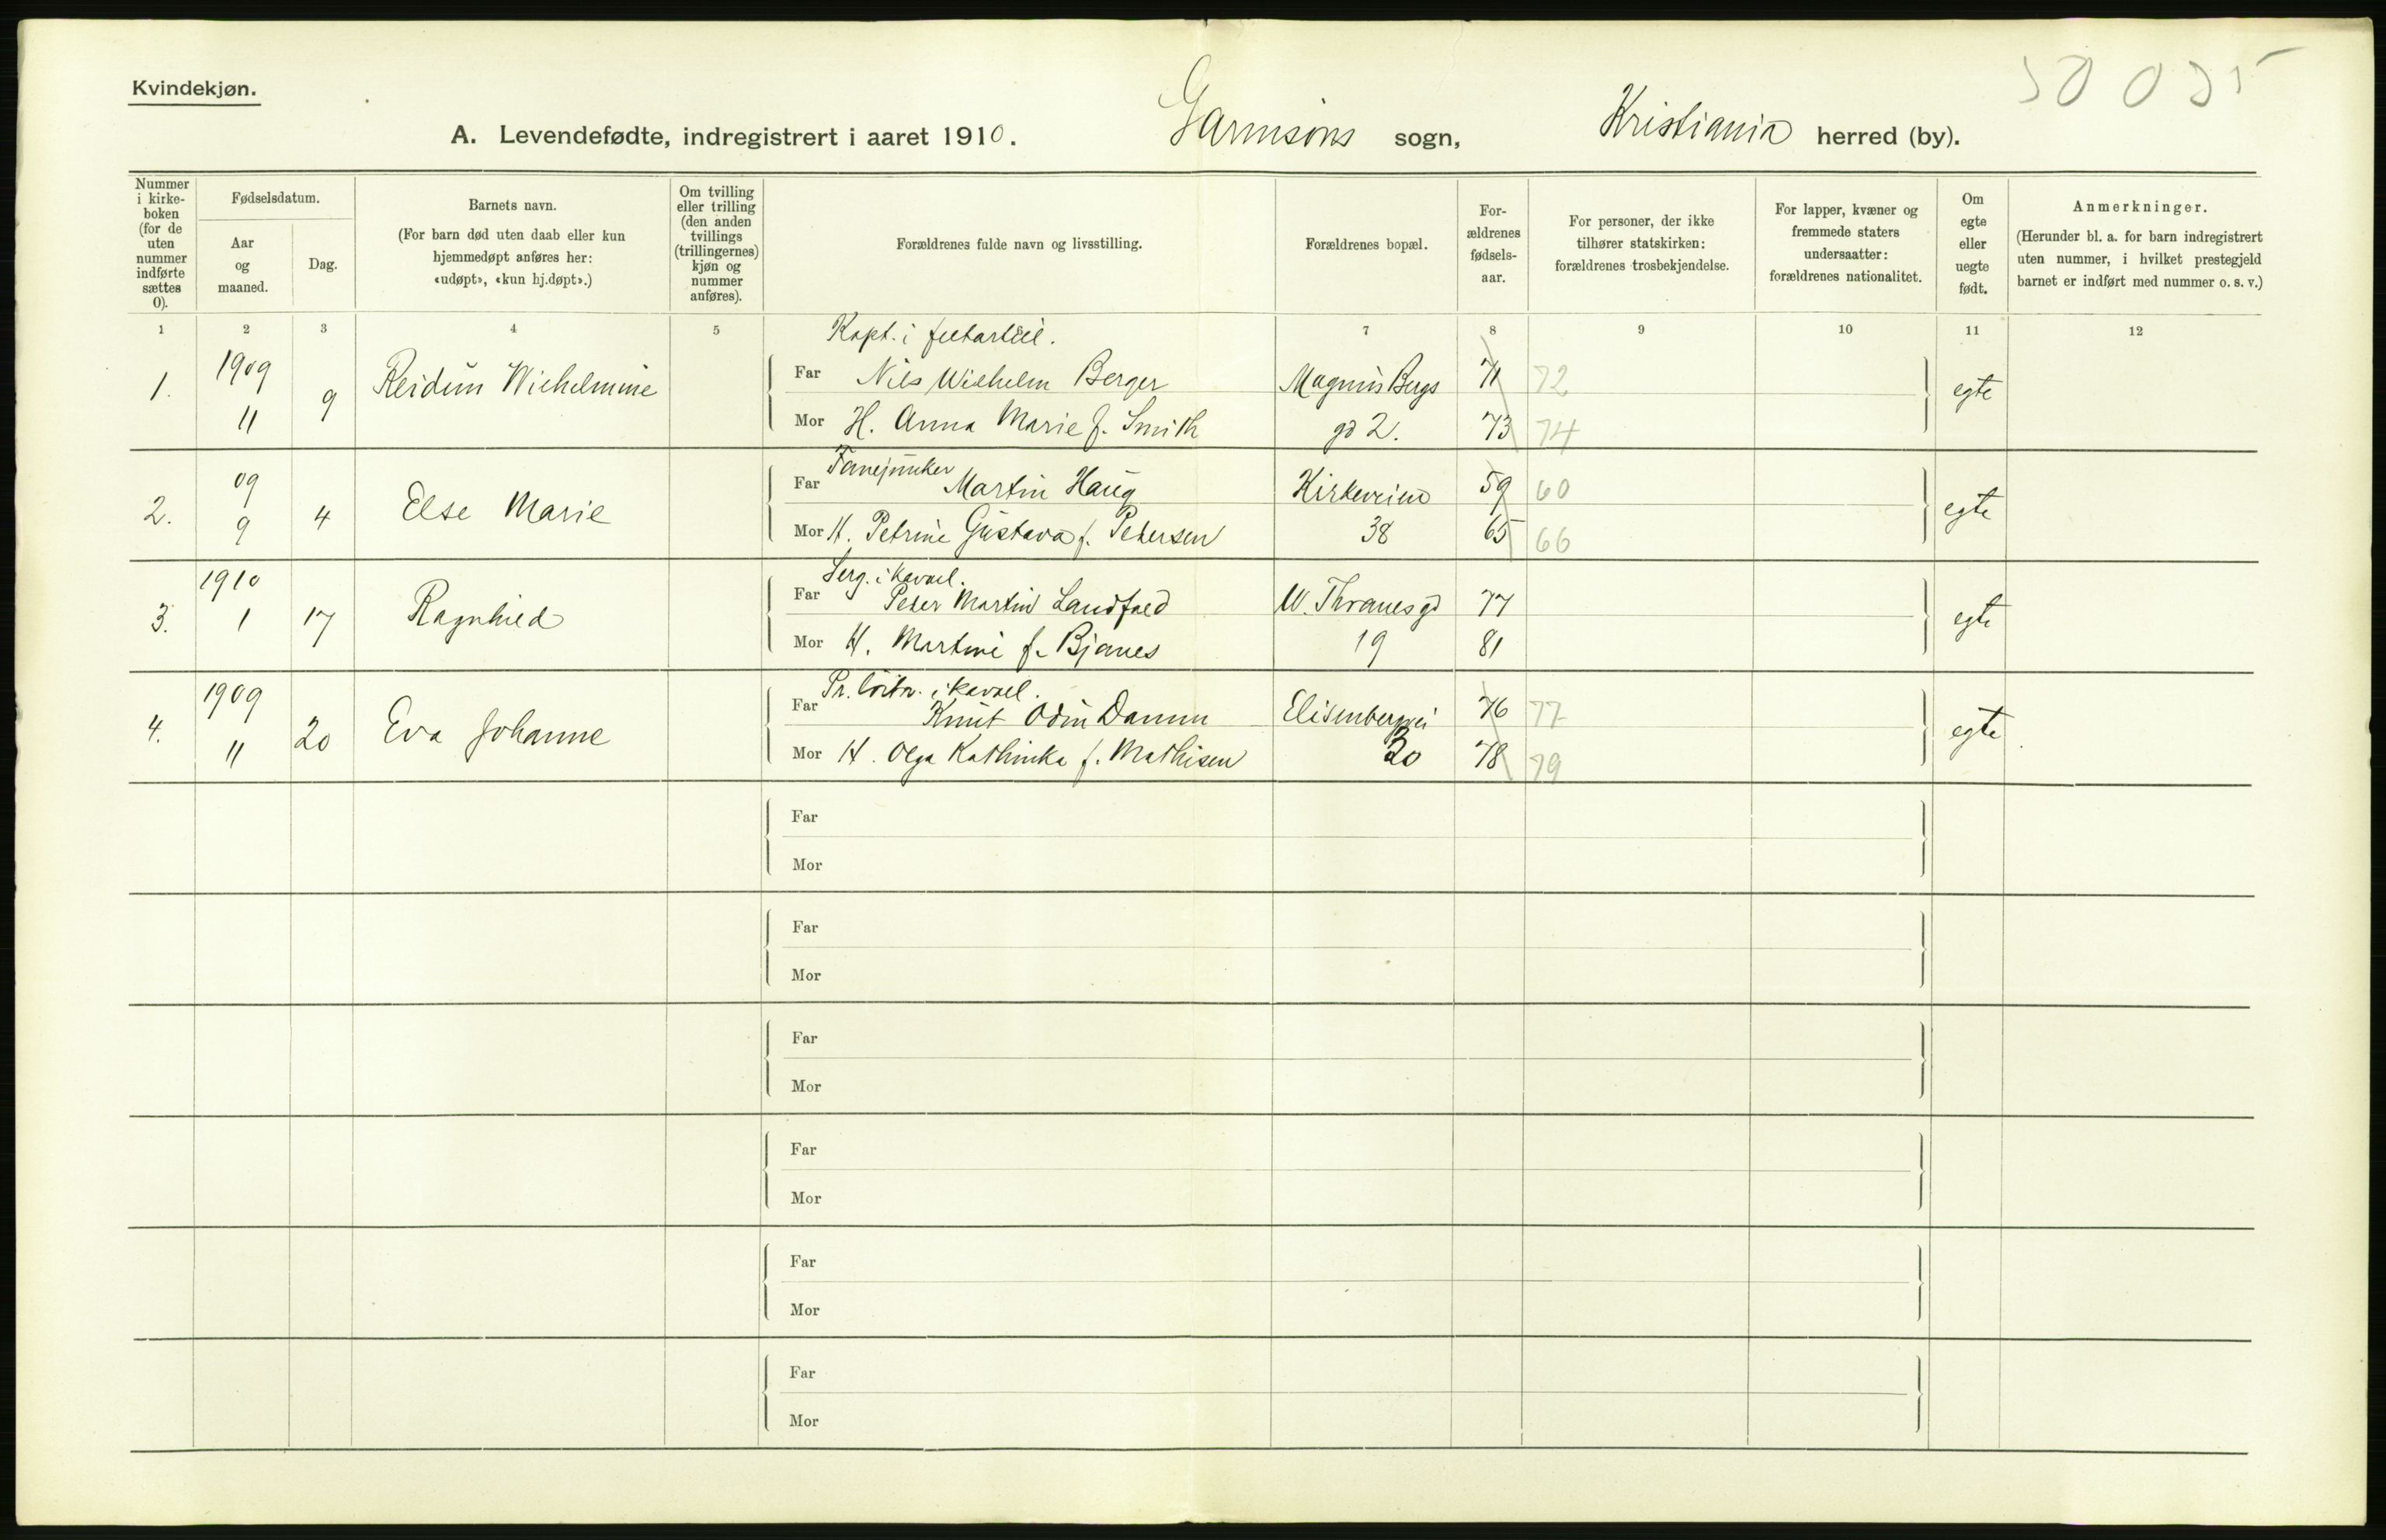 Kvindekjøn.
A. Levendefødte, indregistrert i aaret 1910. Garnisons sogn, Kristiania herred (by).
Nummer i kirke-boken (for de uten nummer indførte sættes 0).
Fødselsdatum.
Aar og maaned.
Dag.
Barnets navn.
(For barn død uten daab eller kun hjemmedøpt anføres her: «udøpt», «kun hj.døpt».)
Om tvilling eller trilling (den anden tvillings (trillingernes) kjøn og nummer anføres).
Forældrenes fulde navn og livsstilling.
Forældrenes bopæl.
For-ældrenes fødsels-aar.
For personer, der ikke tilhører statskirken: forældrenes trosbekjendelse.
For lapper, kvæner og fremmede staters undersaatter: forældrenes nationalitet.
Om egte eller uegte født.
Anmerkninger.
(Herunder bl. a. for barn indregistrert uten nummer, i hvilket prestegjeld barnet er indført med nummer o. s. v.)
1 2 3 4 5 7 8 9 10 11 12
Kapt. i feltartill.
1. 1909 11 9 Reidun Wilhelmine
Far Nils Wilhelm Berger Magnus Bergs 71 72 egte
Mor H. Anna Marie f. Smith gd 2. 73 74
Fanejunker
2. 09 9 4 Else Marie
Far Martin Haug Kirkeveien 59 60 egte
Mor H. Petrine Gustava f. Petersen 38 65 66
Serg. i kavall.
3. 1910 1 17 Ragnhild
Far Peder Martin Landfald W. Thranes gd 77 egte
Mor H. Martine f. Bjanes 19 81
Pr. løitn. i kavall.
4. 1909 11 20 Eva Johanne
Far Knut Odin Damm Elisenbergvei 76 77 egte
Mor H. Olga Kathinka f. Mathisen 30 78 79
Far
Mor
Far
Mor
Far
Mor
Far
Mor
Far
Mor
Far
Mor